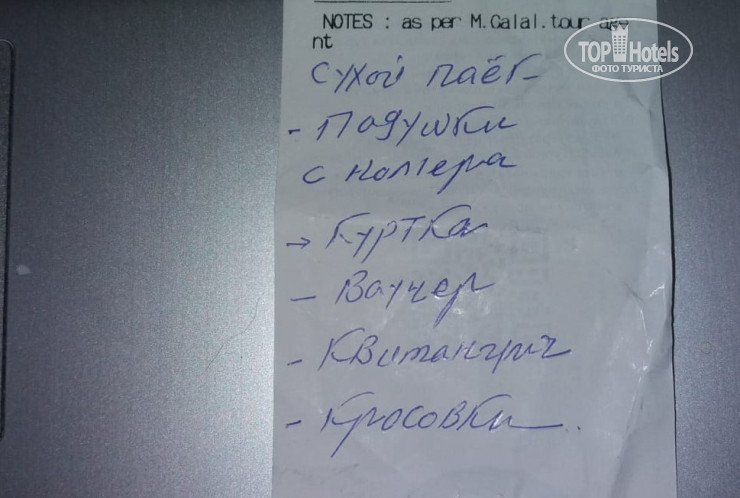 NOTES : as per M.Galal.tour age
nt
TOP Hotels
ФОТО ТУРИСТА
сухой паёк-
- Подушки
с номера
→ Куртка
- Ваучер
- Квитанция
- Кросовки.